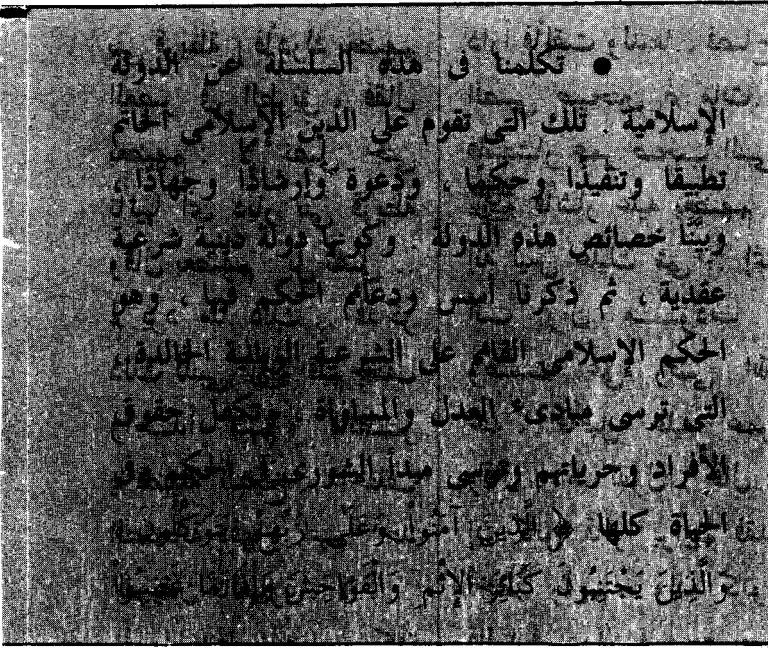 ● تكلمنا في هذه السلسلة عن الدولة
الإسلامية . تلك التي تقوم على الدين الإسلامي الخاتم
تطبيقا وتنفيذا وحكما ، ودعوة وإرشادا وجهادا ،
وبيّنّا خصائص هذه الدولة . وكونها دولة دينية شرعية
عقدية ، ثم ذكرنا أسس ودعائم الحكم فيها ، وهو
الحكم الإسلامي القائم على الشرعية الربانية الخالدة ،
التي ترسى مبادىء العدل والمساواة ، وتكفل حقوق
الأفراد وحرياتهم وترسى مبدأ الشورى في الحكم وفي
الحياة كلها ﴿ الَّذِينَ آمَنُوا وَعَلَى رَبِّهِمْ يَتَوَكَّلُونَ
وَالَّذِينَ يَجْتَنِبُونَ كَبَائِرَ الإِثْمِ وَالْفَوَاحِشَ